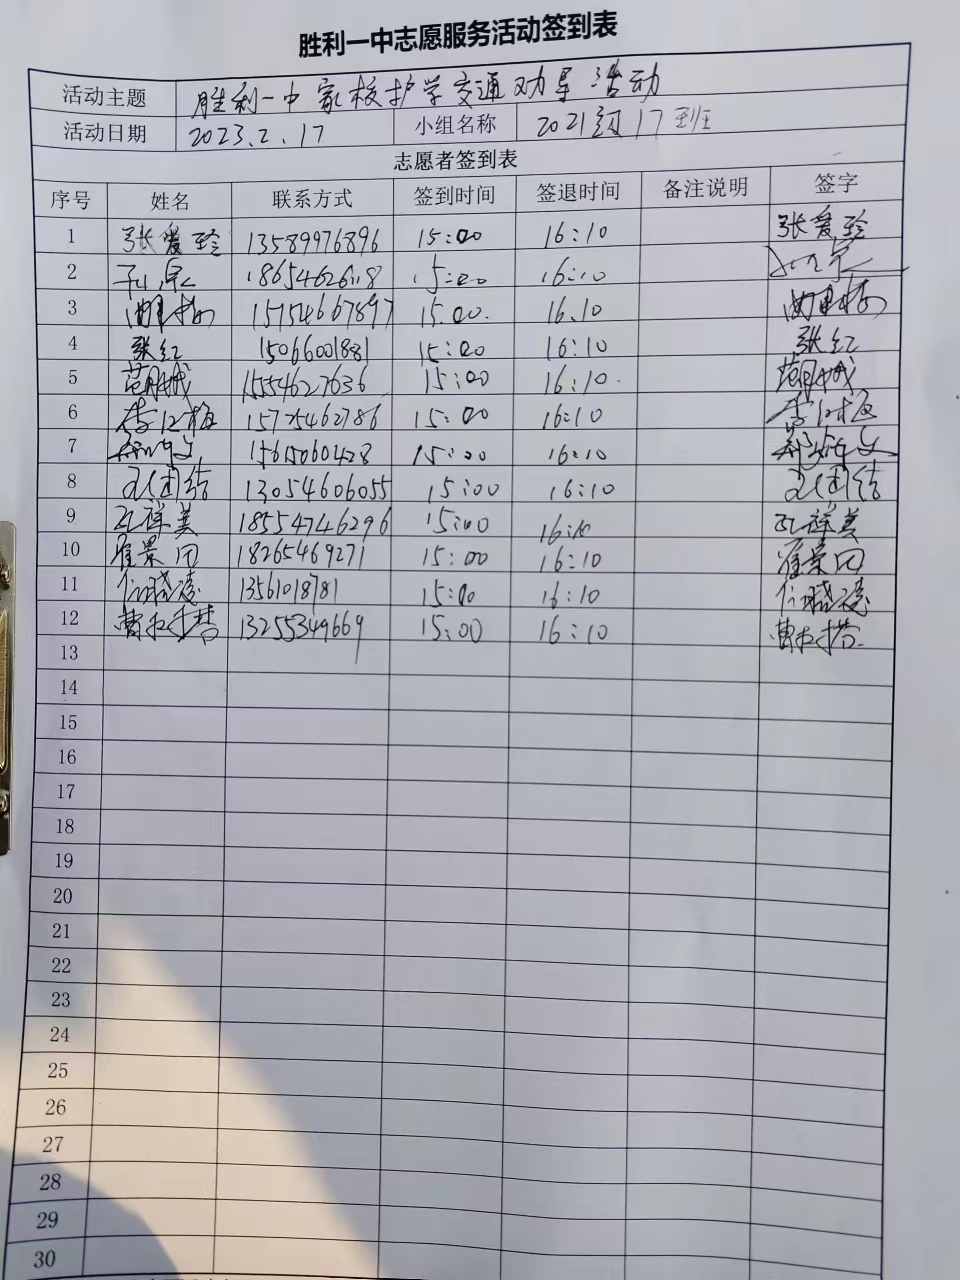 胜利一中志愿服务活动签到表
活动主题 胜利一中家校护学交通劝导活动
活动日期 2023.2.17 小组名称 2021级17班
志愿者签到表
序号 姓名 联系方式 签到时间 签退时间 备注说明 签字
1 张爱玲 13589976896 15:00 16:10 张爱玲
2 15:00 16:10
3 15754667897 15.00. 16.10
4 张红 15066001881 15:00 16:10 张红
5 15554627636 15:00 16:10.
6 李红梅 15725462786 15:00 16:10 李红梅
7 15615060428 15:00 16:10
8 团结 13054606055 15:00 16:10 团结
9 祥美 18554746296 15:00 16:10 祥美
10 崔景田 18265469271 15:00 16:10 崔景田
11 15:00 16:10
12 曹 13255349669 15:00 16:10 曹
13
14
15
16
17
18
19
20
21
22
23
24
25
26
27
28
29
30